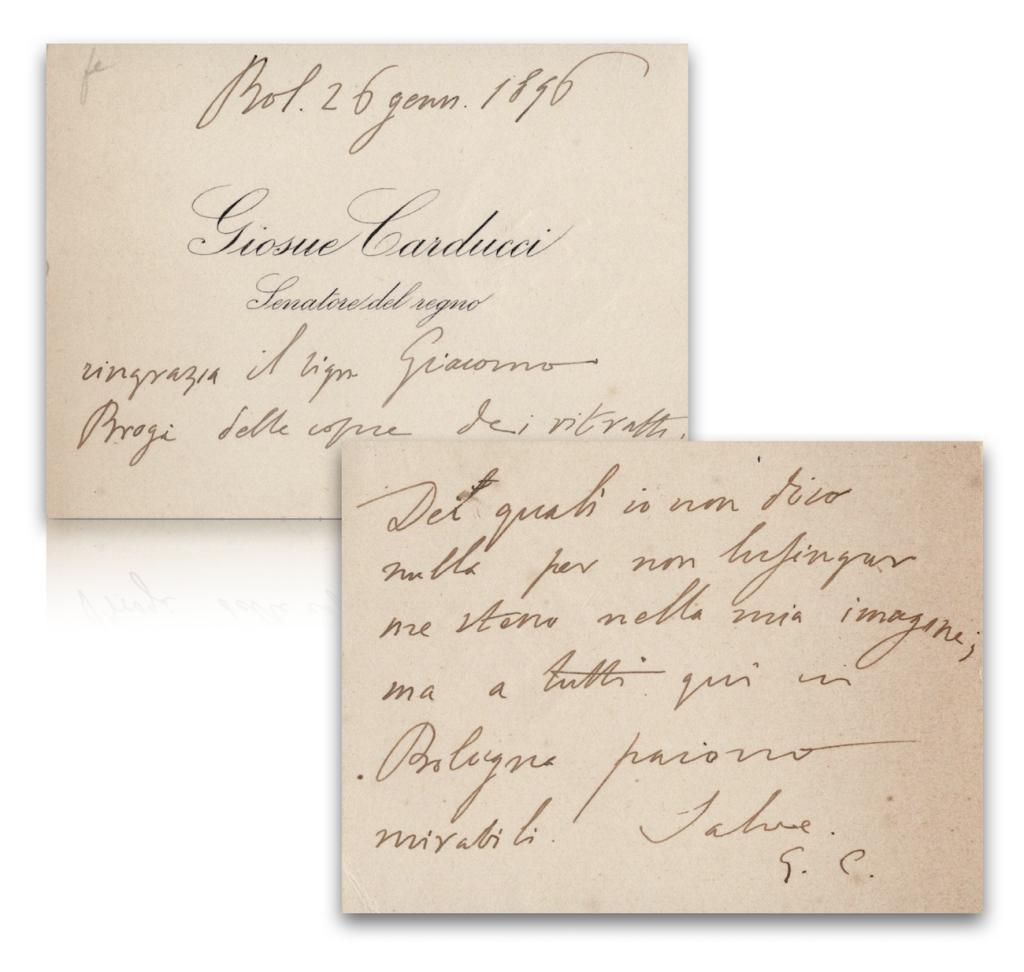 fe
Bol. 26 genn. 1896
Giosue Carducci
Senatore del regno
ringrazia il sigr Giacomo
Brogi delle copie dei ritratti.
Dei quali io non dico
nulla per non lusingar
me stesso nella mia imagine;
ma a tutti qui in
Bologna paiono
mirabili. Salve.
G. C.